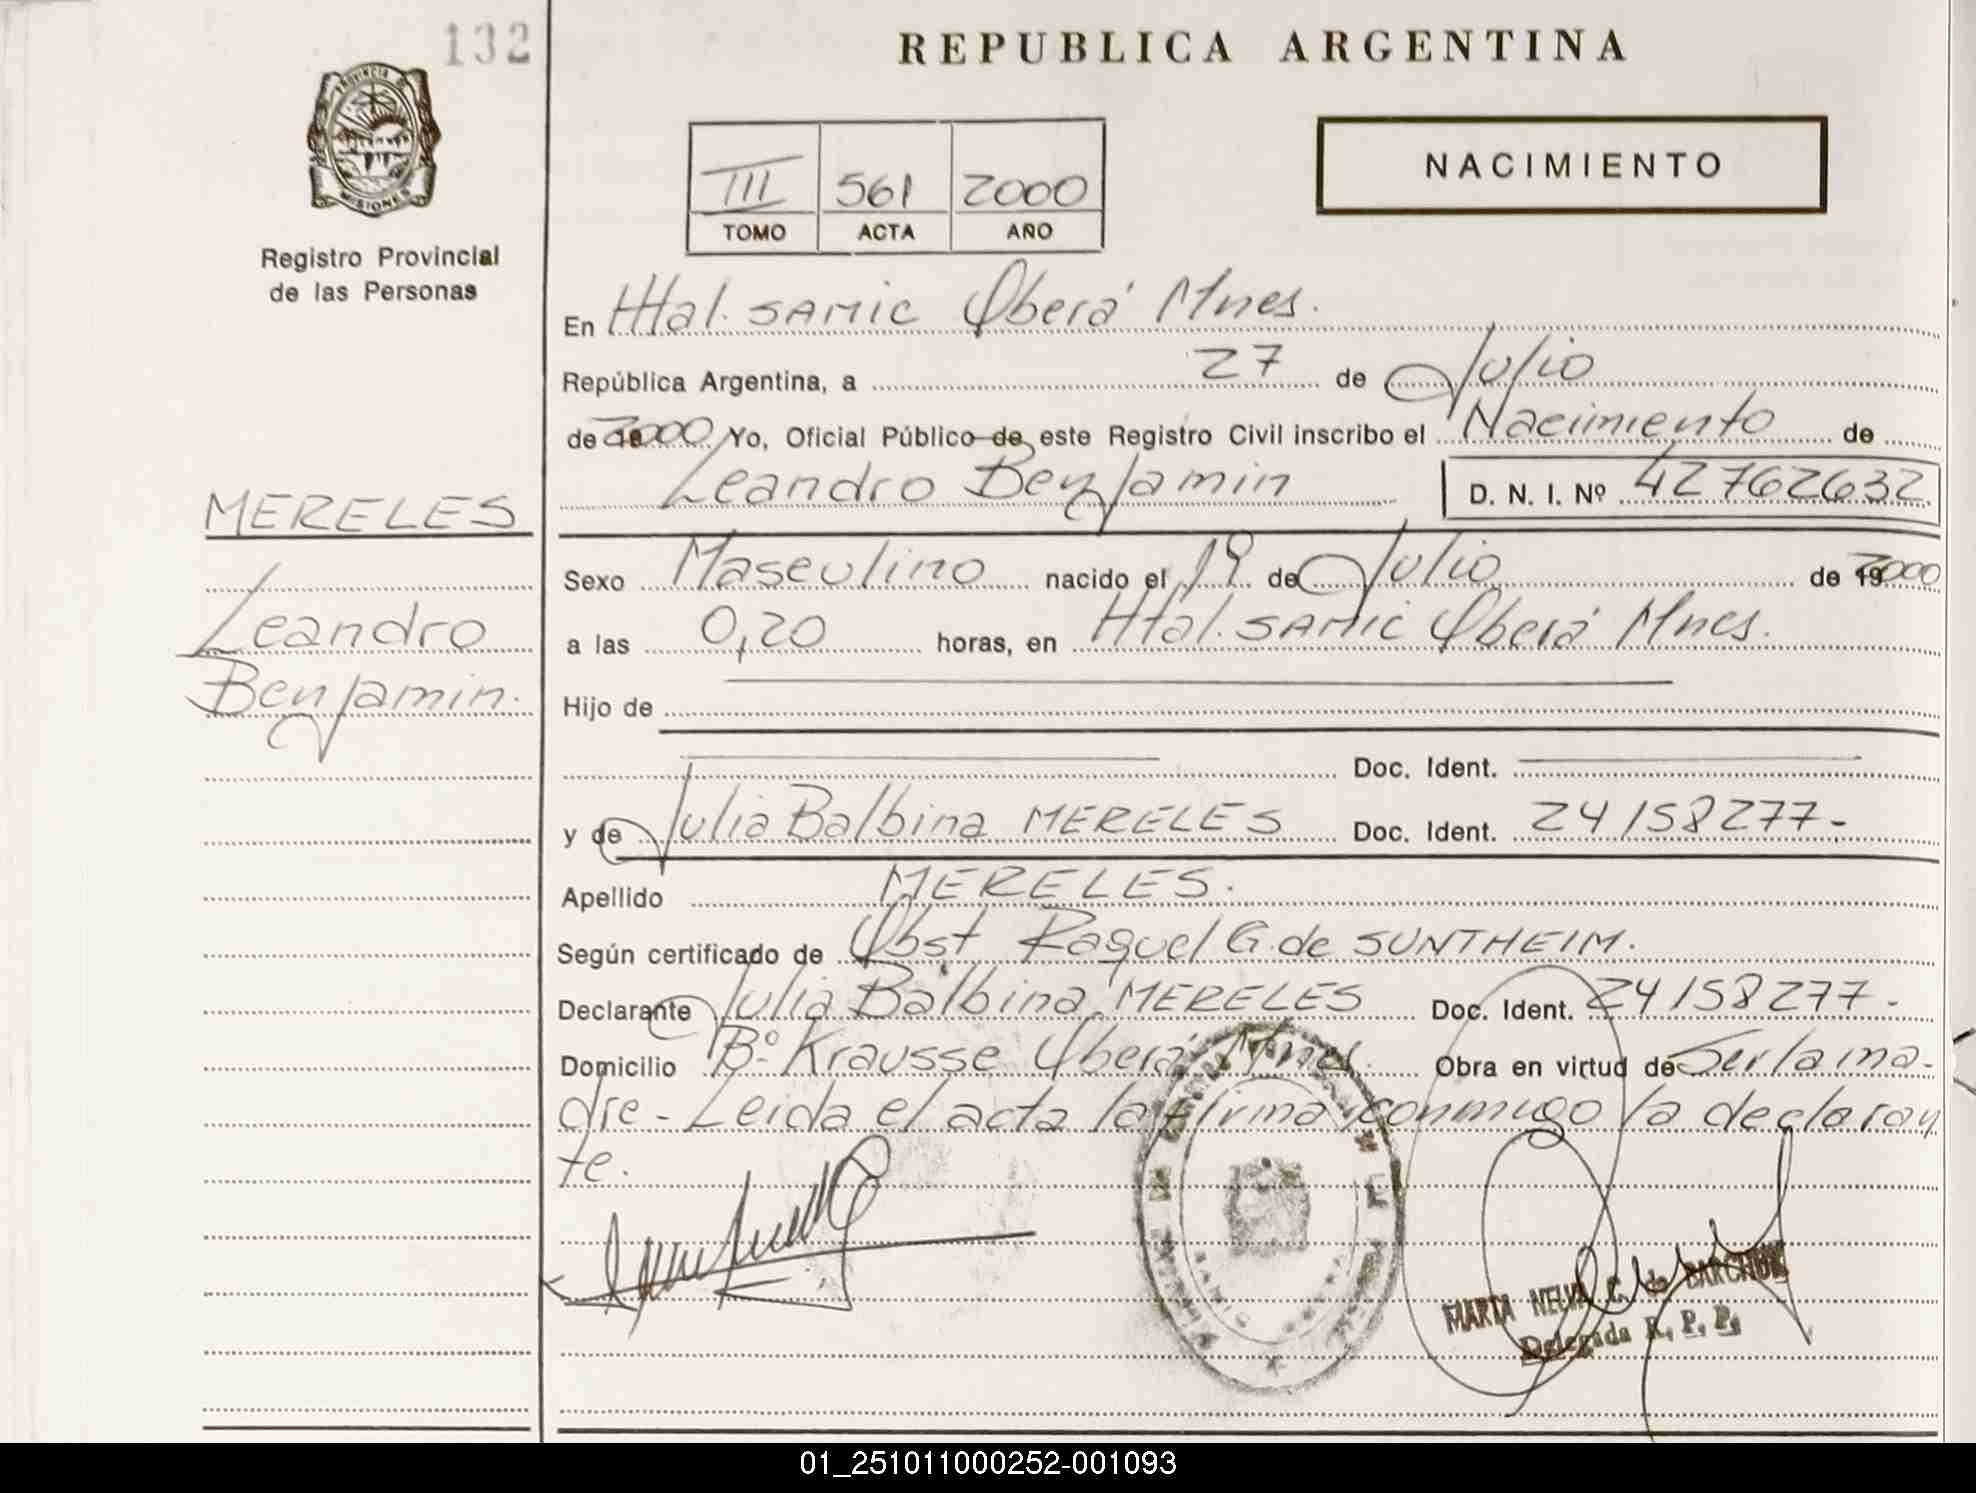 132
REPUBLICA ARGENTINA
PROVINCIA DE MISIONES
NACIMIENTO
III 561 2000
TOMO ACTA AÑO
Registro Provincial
de las Personas
En Htal. SAMIC Oberá Mnes.
República Argentina, a 27 de Julio
de 2000 Yo, Oficial Público de este Registro Civil inscribo el Nacimiento de
Leandro Benjamin D. N. I. Nº 42762632
MERELES
Leandro
Benjamin.
Sexo Masculino nacido el 19 de Julio de 2000
a las 0,20 horas, en Htal. SAMIC Oberá Mnes.
Hijo de
Doc. Ident.
y de Julia Balbina MERELES Doc. Ident. 24158277-
Apellido MERELES.
Según certificado de Obst Raquel G. de SUNTHEIM.
Declarante Julia Balbina MERELES Doc. Ident. 24158277.
Domicilio Bº Krausse Oberá Mnes. Obra en virtud de Ser la ma-
dre - Leida el acta la firma conmigo la declaran
te.
MARTA NELVA C. de BARCHUK
Delegada R. P. P.
01_251011000252-001093